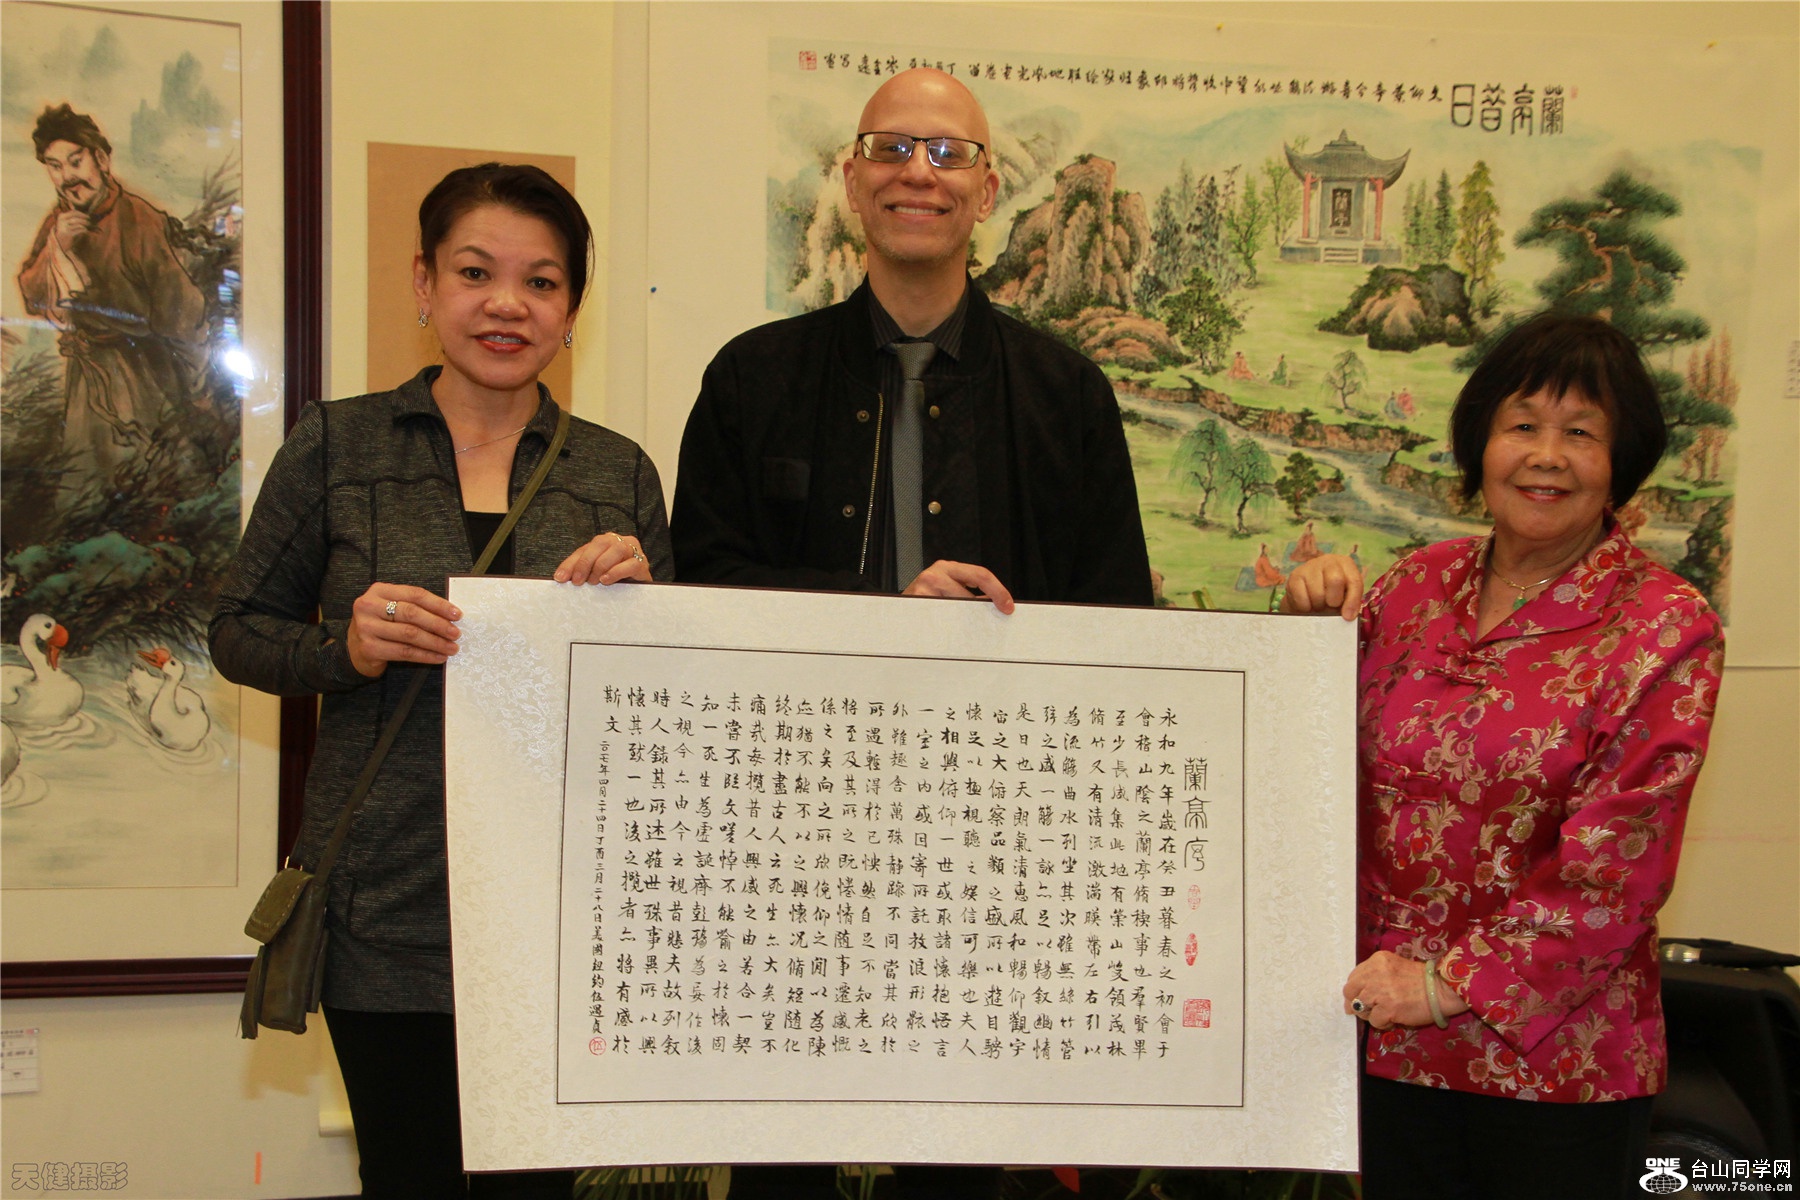 蘭亭昔日
蘭亭序
永和九年歲在癸丑暮春之初會于
會稽山陰之蘭亭脩稧事也羣賢畢
至少長咸集此地有崇山峻領茂林
脩竹又有清流激湍暎帶左右引以
為流觴曲水列坐其次雖無絲竹管
弦之盛一觴一詠亦足以暢敘幽情
是日也天朗氣清惠風和暢仰觀宇
宙之大俯察品類之盛所以遊目騁
懷足以極視聽之娛信可樂也夫人
之相與俯仰一世或取諸懷抱悟言
一室之內或因寄所託放浪形骸之
外雖趣舍萬殊靜躁不同當其欣於
所遇輒得於己怏然自足不知老之
將至及其所之既惓情隨事遷感慨
係之矣向之所欣俛仰之閒以為陳
迹猶不能不以之興懷況脩短隨化
終期於盡古人云死生亦大矣豈不
痛哉每攬昔人興感之由若合一契
未嘗不臨文嗟悼不能喻之於懷固
知一死生為虛誕齊彭殤為妄作後
之視今亦由今之視昔悲夫故列敘
時人錄其所述雖世殊事異所以興
懷其致一也後之攬者亦將有感於
斯文
二〇一七年四月二十四日丁酉三月二十八日美國紐約伍遇貞
天健摄影
ONE
台山同学网
www.75one.cn